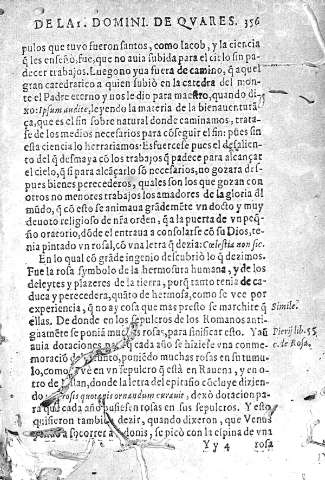 DE LA I. DOMINI. DE QVARES. 356
pulos que tuvo fueron santos, como Iacob, y la ciencia
q̃ les enseñò, fue, que no auia subida para el cielo sin pa-
decer trabajos. Luego no yua fuera de camino, q̃ aquel
gran catedratico a quien subiò en la catedra del mon-
te el Padre eterno y nos le dio para maestro, quando di-
xo: Ipsum audite, leyendo la materia de la bienauentura
ça, que es el fin sobre natural donde caminamos, trata-
se de los medios necesarios para cõseguir el fin: pues sin
esta ciencia lo herrariamos. Esfuercese pues el desalien-
to del q̃ desmaya cõ los trabajos q̃ padece para alcançar
el cielo, q̃ si para alcãçarlo sõ necesarios, no gozara des-
pues bienes perecederos, quales son los que gozan con
otros no menores trabajos los amadores de la gloria dl
mũdo, q̃ cõ esto se animaua grãdemẽte vn docto y muy
deuoto religioso de nr̃a orden, q̃ a la puerta de vn peq̃-
ño oratorio, dõde el entraua a consolarse cõ su Dios, te-
nia pintado vn rosal, cõ vna letra q̃ dezia: Cœlestia non sic.
En lo qual cõ grãde ingenio descubriò lo q̃ dezimos.
Fue la rosa symbolo de la hermosura humana, y de los
deleytes y plazeres de la tierra, porq̃ tanto tenia de ca-
duca y perecedera, quãto de hermosa, como se vee por
experiencia, q̃ no ay cosa que mas presto se marchite q̃
ellas. De donde en los sepulcros de los Romanos anti-
guamẽte se poniã muchas rosas, para sinificar esto. Y aũ
auia dotaciones para q̃ cada año se hiziese vna conme-
moraciõ del difunto, poniẽdo muchas rosas en su tumu-
lo, como se vè en vn sepulcro q̃ està en Rauena, y en o-
tro de Milan, donde la letra del epitafio cõcluye dizien-
do: rosis quotquotannis ornandum curauit, dexò dotacion pa-
ra que cada año pusiesen rosas en sus sepulcros. Y esto
quisieron tambien dezir, quando dixeron, que Venus
yendo a socorrer a Adonis, se picò con la espina de vna
Y y 4 rosa
Simile.
Pierij lib. 55
c. de Rosa.